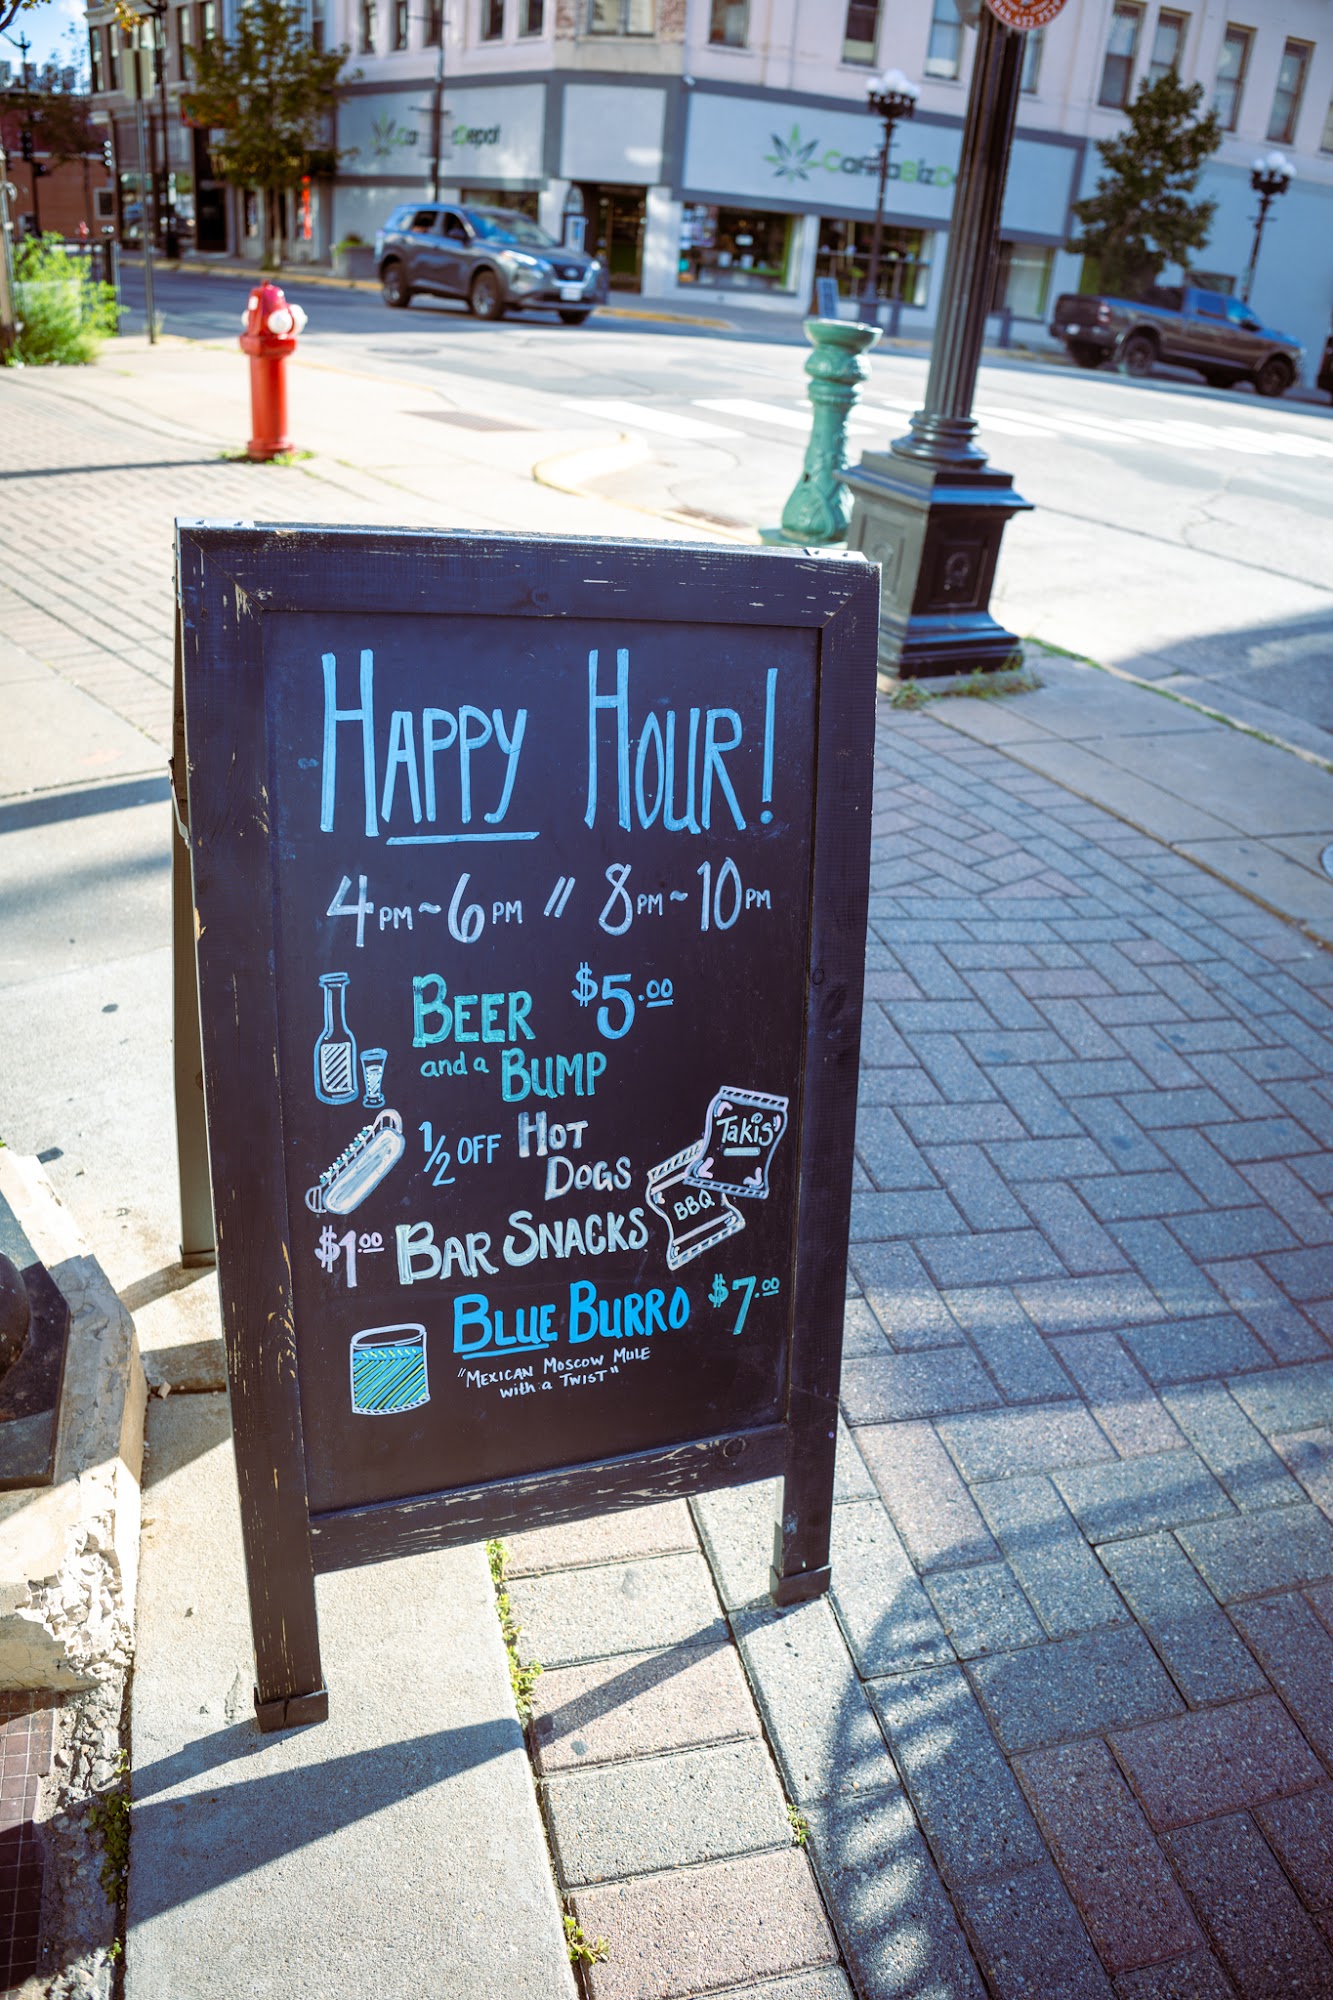 HAPPY HOUR!
4PM~6PM // 8PM~10PM
BEER $5.00
and a BUMP
1/2 OFF HOT
DOGS
Takis
BBQ
$1.00 BAR SNACKS
BLUE BURRO $7.00
"MEXICAN MOSCOW MULE
with a TWIST"